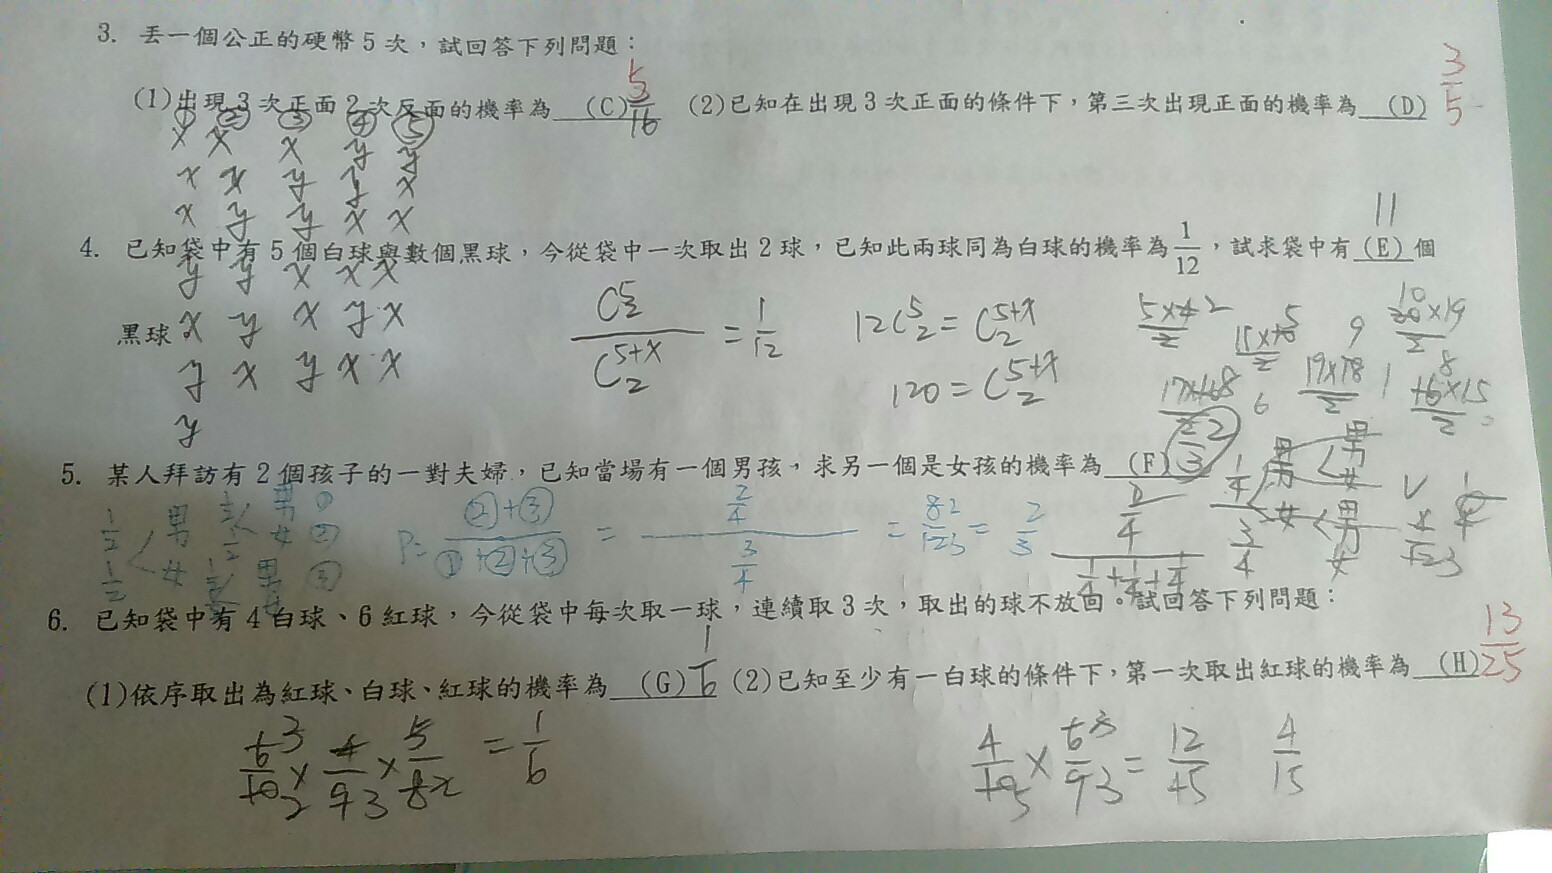 3. 丟一個公正的硬幣5次，試回答下列問題：
(1)出現3次正面2次反面的機率為 (C) 5/16 (2)已知在出現3次正面的條件下，第三次出現正面的機率為 (D) 3/5
① ② ③ ④ ⑤
x x x y y
x x y y x
x y y x x
11
4. 已知袋中有5個白球與數個黑球，今從袋中一次取出2球，已知此兩球同為白球的機率為 1/12，試求袋中有 (E) 個
y y x x x
黑球
x y x y x
y x y x x
y
C52 / C5+x2 = 1/12
12C52 = C5+x2
120 = C5+x2
5. 某人拜訪有2個孩子的一對夫婦，已知當場有一個男孩，求另一個是女孩的機率為 (F) 2/3
1/2 男 1/2 男 ①
1/2 女 ②
1/2 女 1/2 男 ③
P= ②+③ / ①+②+③ = 2/4 / 3/4 = 8/12 = 2/3
2/4 / 1/4+1/4+1/4
1/4 / 3/4
男 男
女
女 男
女
6. 已知袋中有4白球、6紅球，今從袋中每次取一球，連續取3次，取出的球不放回。試回答下列問題：
(1)依序取出為紅球、白球、紅球的機率為 (G) 1/6 (2)已知至少有一白球的條件下，第一次取出紅球的機率為 (H) 13/25
6/10 × 4/9 × 5/8 = 1/6
4/10 × 6/9 = 12/45 4/15